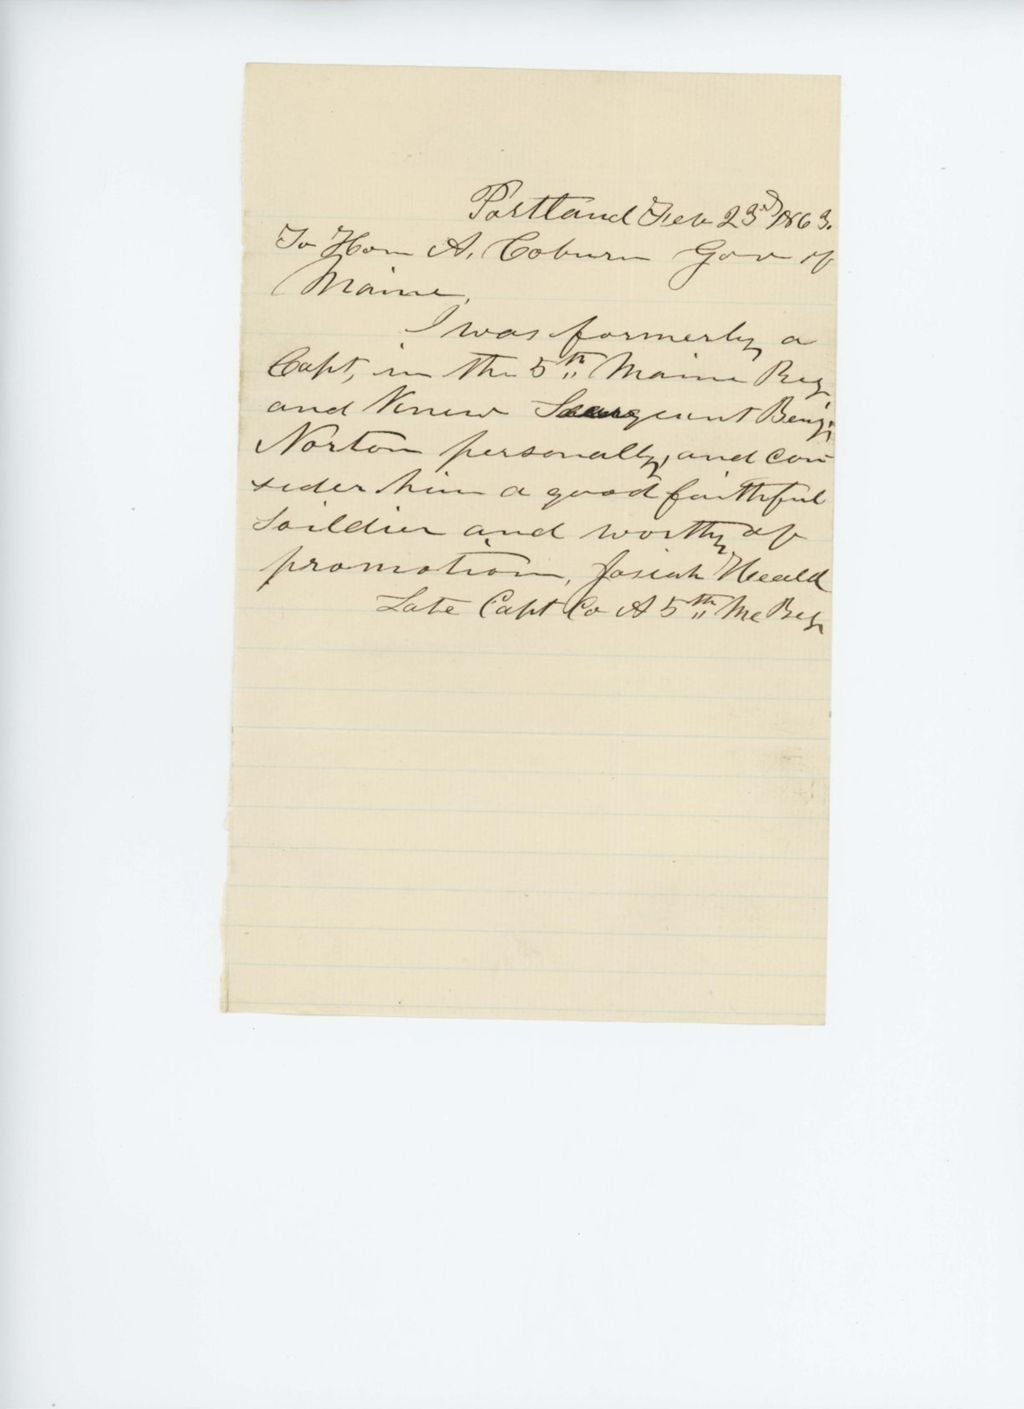 Portland Feb 23d 1863.
To Hon A. Coburn Gov of
Maine,
I was formerly a
Capt, in the 5th Maine Reg,
and Knew Seargeant Benj;
Norton personally, and con
sider him a good faithful
Soildier and worthy of
promotion, Josiah Heald
Late Capt Co A 5th Me Reg